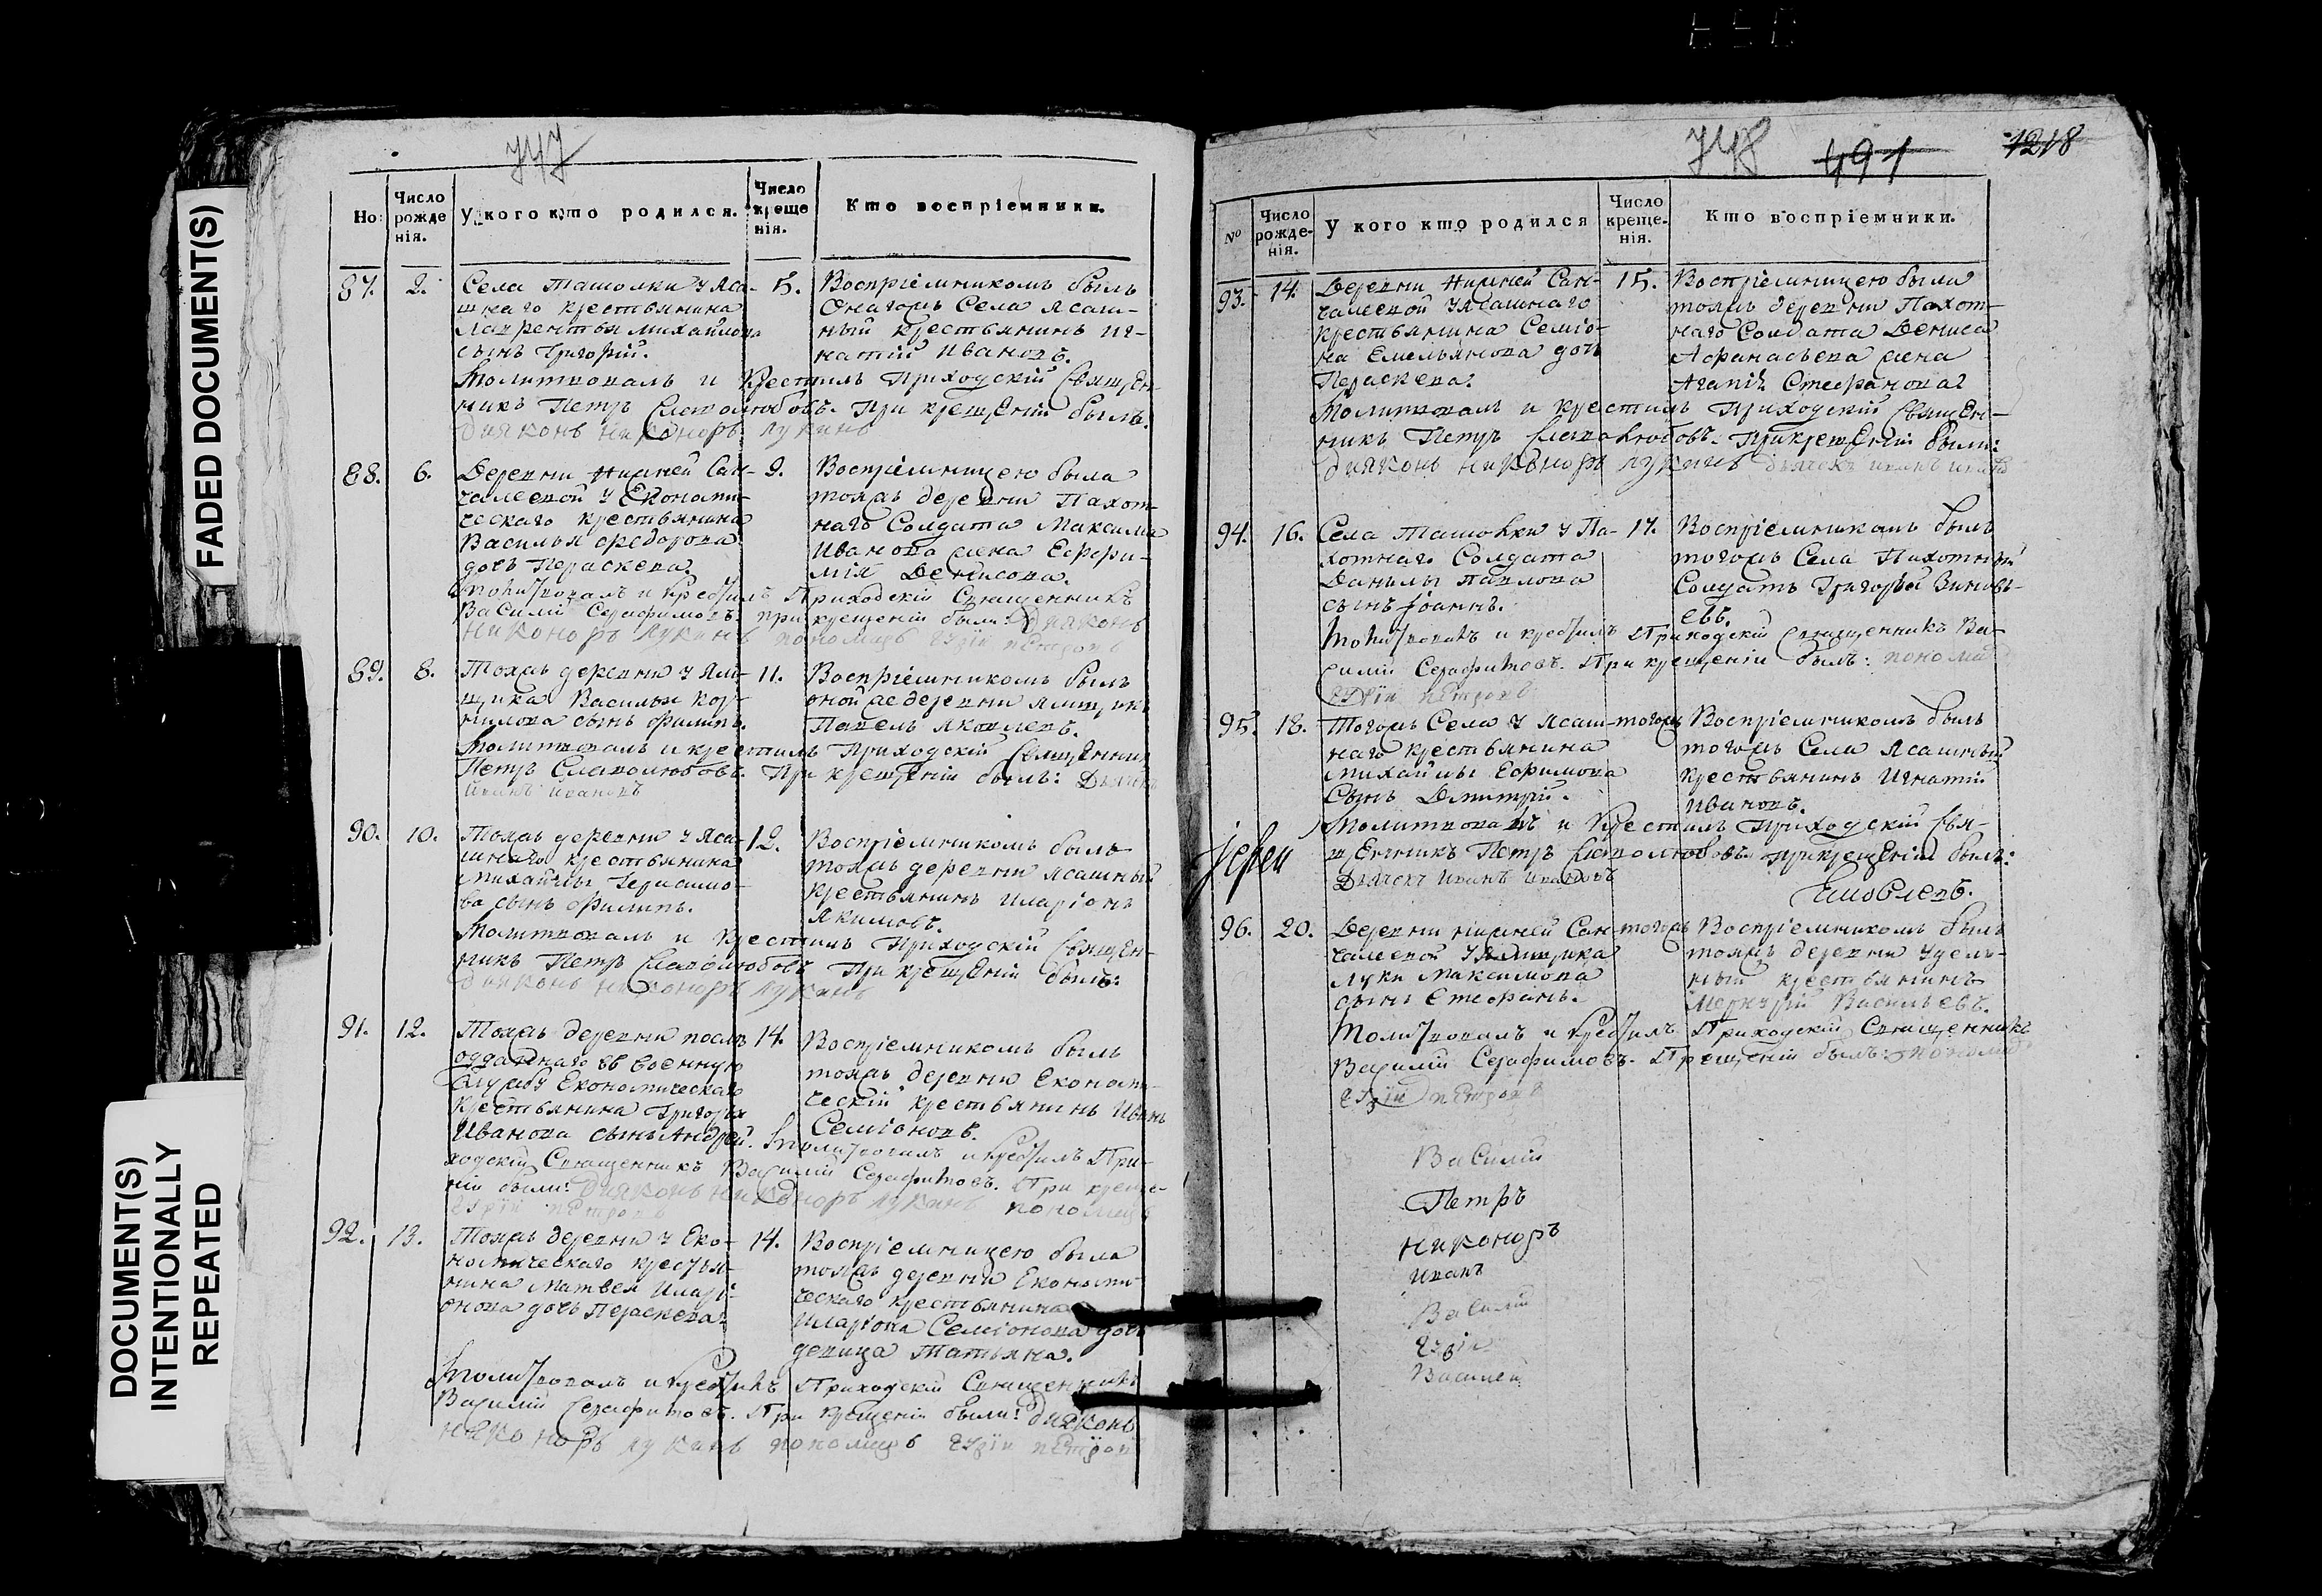 747
Но:
Число рожде нія.
У кого кто родился.
Число креще нія.
Кто воспріемники.
87.
2.
Села Ташолки у Яса-
шнаго крестьянина
Лаврентья Михайлова
сынъ Григорій.
5.
Воспріемникомъ былъ
Онагожъ Села ясаш-
ный крестьянинъ Иг-
натій Ивановъ.
Молитвовалъ и Крестилъ Приходскій Священ-
никъ Петръ Славолюбовъ. При крещеніи былъ:
Диаконъ Никоноръ Лукинъ
88.
6.
Деревни Нижней Сан-
чалеевой у Економи-
ческаго крестьянина
Василья Федорова
дочь Параскева.
9.
Воспріемницею была
тояжъ деревни Пахот-
наго Солдата Максима
Иванова жена Ефрфи-
мія Денисова.
Молитвовалъ и крестилъ Приходскій Священникъ
Василій Серафимовъ. При крещеніи были: Диаконъ
Никоноръ Лукинъ пономарь Гурій Петровъ
89.
8.
Тояжъ деревни у Ям-
щика Василья Кор-
нилова сынъ Филипъ.
11.
Воспріемникомъ былъ
оной же деревни ямщикъ
Павелъ Яковлевъ.
Молитвовалъ и крестилъ Приходскій Священникъ
Петръ Славолюбовъ. При крещеніи былъ: Дьячекъ
Иванъ Ивановъ
90.
10.
Тояжъ деревни у Яса-
шнаго крестьянина
Михайлы Герасимо-
ва сынъ Филипъ.
12.
Воспріемникомъ былъ
тояжъ деревни ясашный
крестьянинъ Иларіонъ
Якимовъ.
Молитвовалъ и Крестилъ Приходскій Священ-
никъ Петръ Славолюбовъ При крещеніи былъ:
Диаконъ Никоноръ Лукинъ
91.
12.
Тояжъ деревни после
отданнаго въ военную
службу Економическаго
крестьянина Григорья
Иванова сынъ Андрей.
14.
Воспріемникомъ былъ
тояжъ деревни Економи-
ческій крестьянинъ Иванъ
Семіоновъ.
Молитвовалъ и крестилъ При-
ходскій Священникъ Василій Серафимовъ. При креще-
ніи были: Диаконъ Никоноръ Лукинъ пономарь
Гурій Петровъ
92.
13.
Тояжъ деревни у Еко-
номическаго крестья-
нина Матвея Иларі-
онова дочь Параскева.
14.
Воспріемницею была
тояжъ деревни Економи-
ческаго крестьянина
Иларіона Семіонова дочь
девица Татьяна.
Молитвовалъ и крестилъ Приходскій Священникъ
Василій Серафимовъ. При крещеніи были: Диаконъ
Никоноръ Лукинъ пономарь Гурій Петровъ
748
491
1218
№
Число рожде- нія.
У кого кто родился
Число креще- нія.
Кто воспріемники.
93.
14.
Деревни Нижней Сан-
чалеевой у Ясашнаго
крестьянина Семіо-
на Емельянова дочь
Параскева.
15.
Воспріемницею была
тояжъ деревни Пахот-
наго Солдата Дениса
Афанасьева жена
Агапія Стефанова.
Молитвовалъ и крестилъ Приходскій Священ-
никъ Петръ Славолюбовъ. При крещеніи были:
Диаконъ Никоноръ Лукинъ дьячекъ Иванъ Ивановъ
94.
16.
Села Ташовки у Па-
хотнаго Солдата
Данилы Павлова
сынъ Іоаннъ.
17.
Воспріемникомъ былъ
тогожъ Села Пахотный
Солдатъ Григорьй Зиновь-
евъ.
Молитвовалъ и крестилъ Приходскій Священникъ Ва-
силій Серафимовъ. При крещеніи былъ: пономарь
Гурій Петровъ
95.
18.
Тогожъ Села у Ясаш-
наго крестьянина
Михайлы Ефимова
Сынъ Дмитрій.
тогожъ
Воспріемникомъ былъ
тогожъ Села Ясашный
крестьянинъ Игнатій
Ивановъ.
Молитвовалъ и Крестилъ Приходскій Свя-
щенникъ Петръ Славолюбовъ. При крещеніи былъ:
Дьячекъ Иванъ Ивановъ
Іерей
Яковлевъ.
96.
20.
Деревни Нижней Сан-
чалеевой у Ямщика
Луки Максимова
сынъ Стефанъ.
тогожъ
Воспріемникомъ былъ
тояжъ деревни удель-
ный крестьянинъ
Меркурій Васильевъ.
Молитвовалъ и крестилъ Приходскій Священникъ
Василій Серафимовъ. При крещеніи былъ: пономарь
Гурій Петровъ
Василій
Петръ
Никоноръ
Иванъ
Василій
Гурій
Василей
FADED DOCUMENT(S)
DOCUMENT(S)
INTENTIONALLY
REPEATED